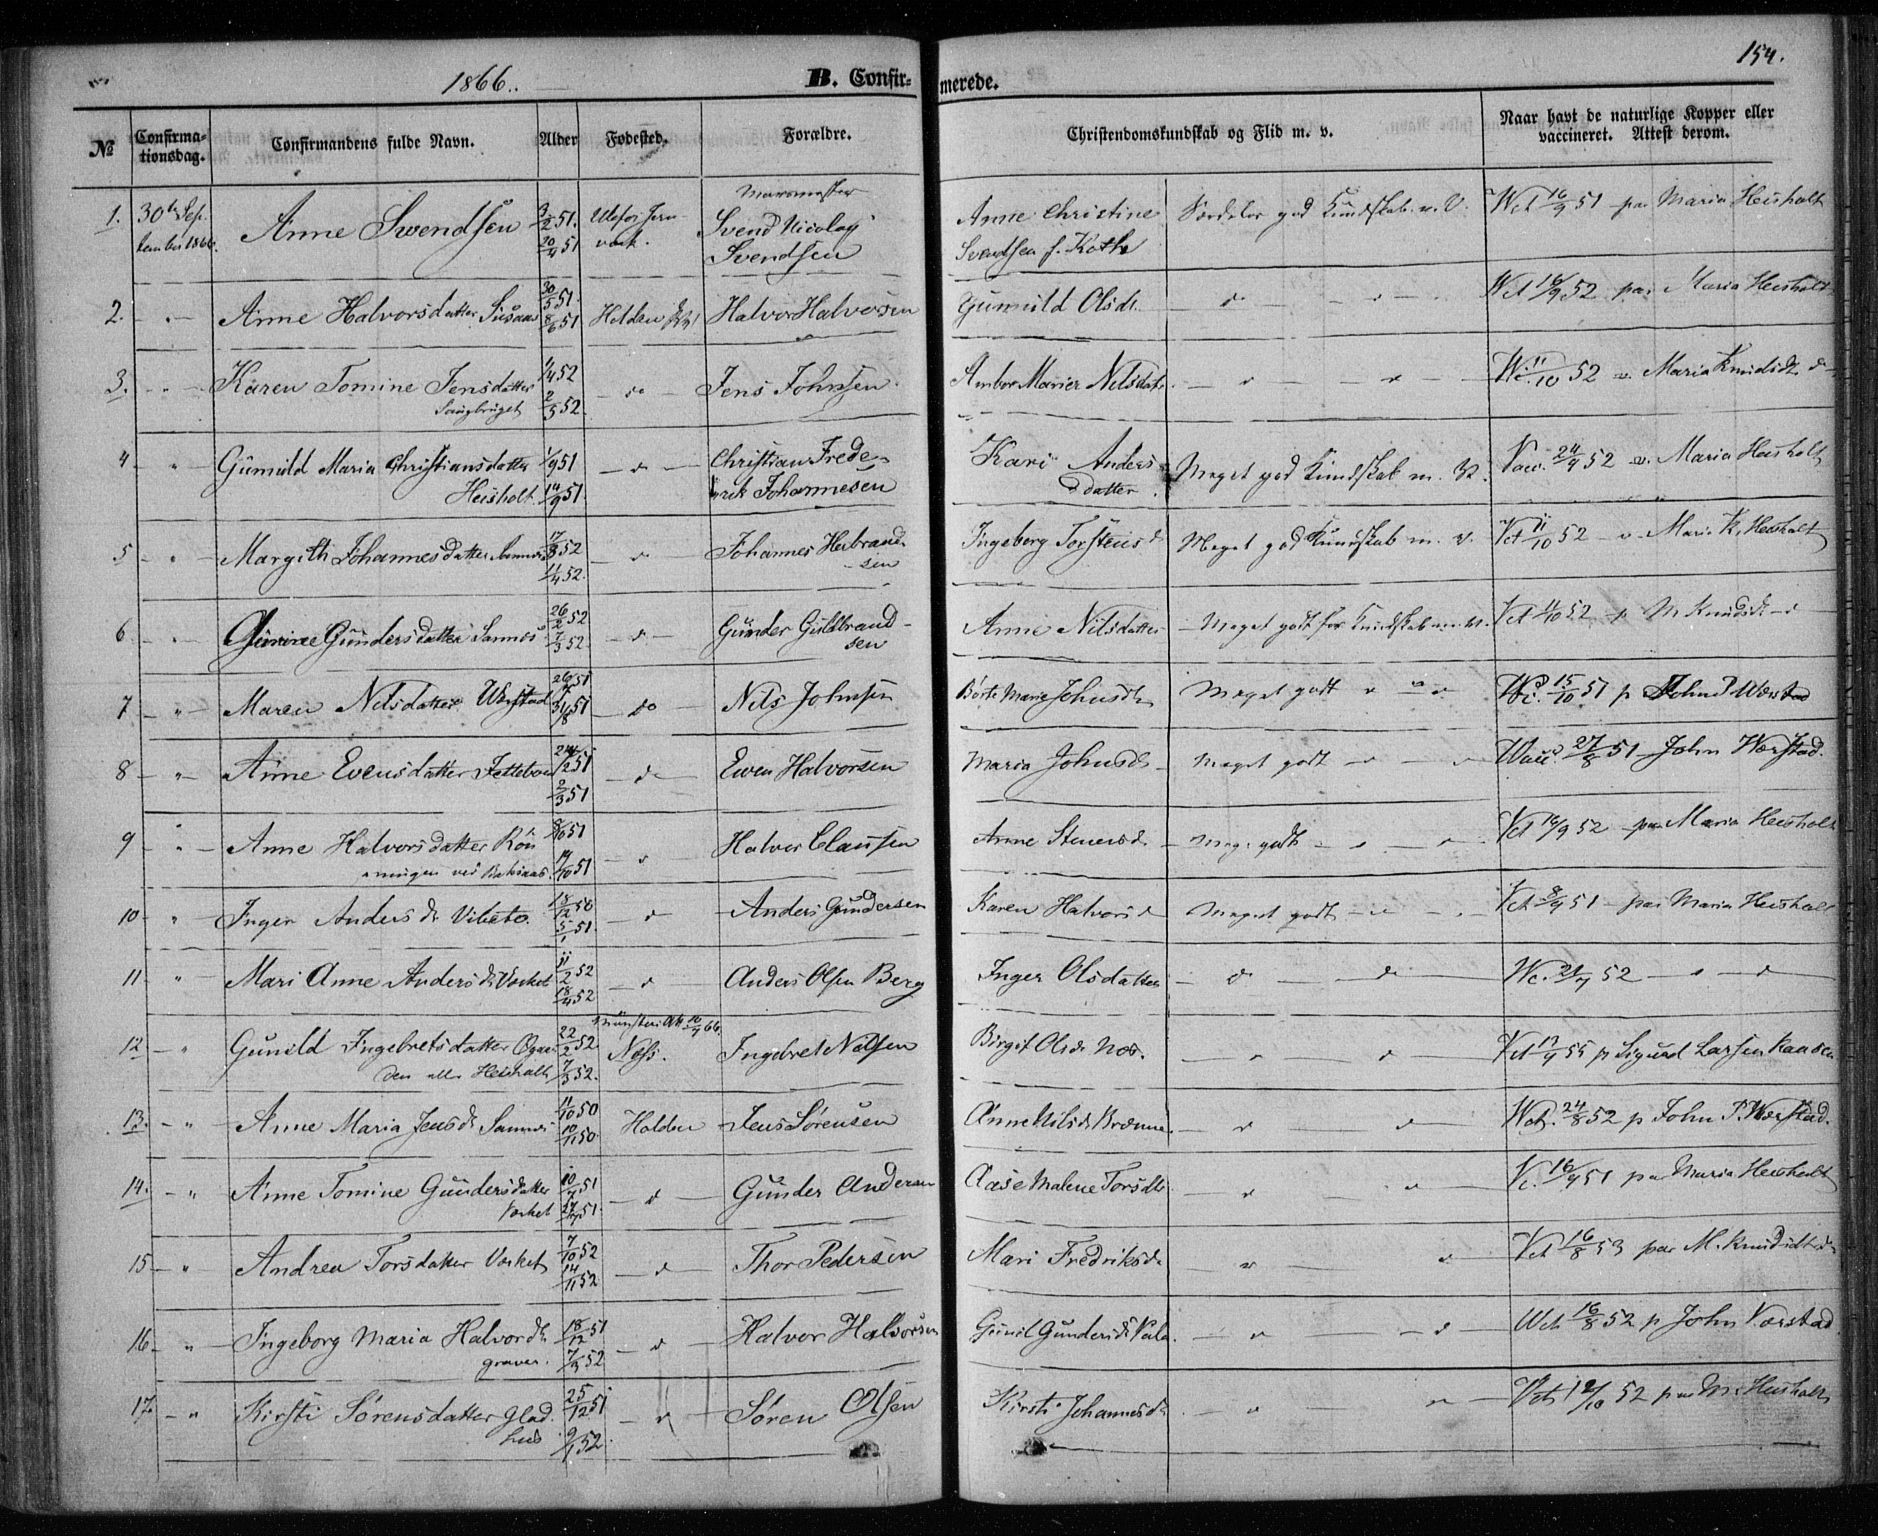 1866.
B. Confirmerede.
154.
№
Confirmationsdag.
Confirmandens fulde Navn.
Alder
Fødested.
Forældre.
Christendomskundskab og Flid m. v.
Naar havt de naturlige Kopper eller vaccineret. Attest derom.
1. 30te September 1866. Anne Svendsen 3/2 51. 20/4 51 Ulefos Jernværk. Svend Nicolay Svendsen Anne Christine Svendsen f. Koth Særdeles god Kundskab m. V. Vct 16/9 51 par Maria Heisholt
2. " Anne Halvorsdatter 30/5 51. 8/6 51 Holden Halvor Halvorsen Gunnild Olsdt. d d Vct 16/9 52 par Maria Heisholt
3. " Karen Tomine Jensdatter Saugbruget 1/4 52 2/5 52. do Jens Johnsen Marie Nilsdatr. Vc. 11/10 52 Maria Knudsdt
4 " Gunnild Maria Christiansdatter Heisholt 1/9 51 14/9 51. d Christian Frederik Johannesen Kari Andersdatter. Meget god Kundskab m. V. Vacc. 24/9 52 Maria Heisholt
5 " Margith Johannesdatter Namnes 52 11/4 52. d Johannes Herbrandsen Ingeborg Torstensd Meget god Kundskab m. V. Vct 11/10 52 Maria K. Heisholt
6 " Gundersdatter Sannes 26/2 52 7/3 52. d Gunder Guldbrandsen Anne Nilsdatter Meget godt for Kundskab m. V. Vct 11/10 52 p M Knudsdt
7 " Maren Nilsdatter Værstad 51 31/8 51 do Nils Johnsen Børte Marie Johnsdtr Meget godt Vc. 15/10 51 p John P Værstad
8 " Anne Evensdatter 51 2/3 51 d Even Halvorsen Maria Johnsdtr Meget godt Vacc. 27/8 51 John Værstad.
9 " Anne Halvorsdatter Rønningen ved 8/10 51 14/10 51 d Halvor Clausen Anne Steners d. Meget godt Vct 16/9 52 par Maria Heisholt
10 " Inger Anders dr Vibeto. 15/12 50 5/1 51 d Anders Gundersen Karen Halvorsd Meget godt Vct 8/9 51 par Maria Heisholt
11 " Mari Anne Anders dr Værket 11/2 52 18/4 52 d Anders Olsen Berg Inger Olsdatter d d Vc. 52
12 " Gunild Ingebretsdatter eller Heisholt 22/2 52 7/3 52. 66. Næss. Ingebret Nilsen Birgit Olsdr Næs. Vct 55 p Sigurd Larsen Kaasen
13. " Anne Maria Jensdr Sannes 11/10 50 10/11 50. Holden Jens Sørensen Anne Nilsdr Vct. 24/8 52 p John P. Værstad.
14. " Anne Tomine Gundersdatter Værket 10/7 51 27/7 51. d Gunder Andersen Aase Malene Torsdtr Vc. 16/9 51 par Maria Heisholt
15 " Andrea Torsdatter Værket 7/10 52 14/11 52 d Thor Pedersen Mari Fredriksdr Vct 16/8 53 par M. Knudsdtr
16 " Ingeborg Maria Halvordtr graver. 18/12 51 7/3 52 d Halvor Halvorsen Gunil Gundersdr Vct 16/8 52 p John Værstad
17. " Kirsti Sørensdatter Gladhus 25/12 51 9/1 52. d Søren Olsen Kirsti Johannesdr Vct 12/10 52 par M. Heisholt